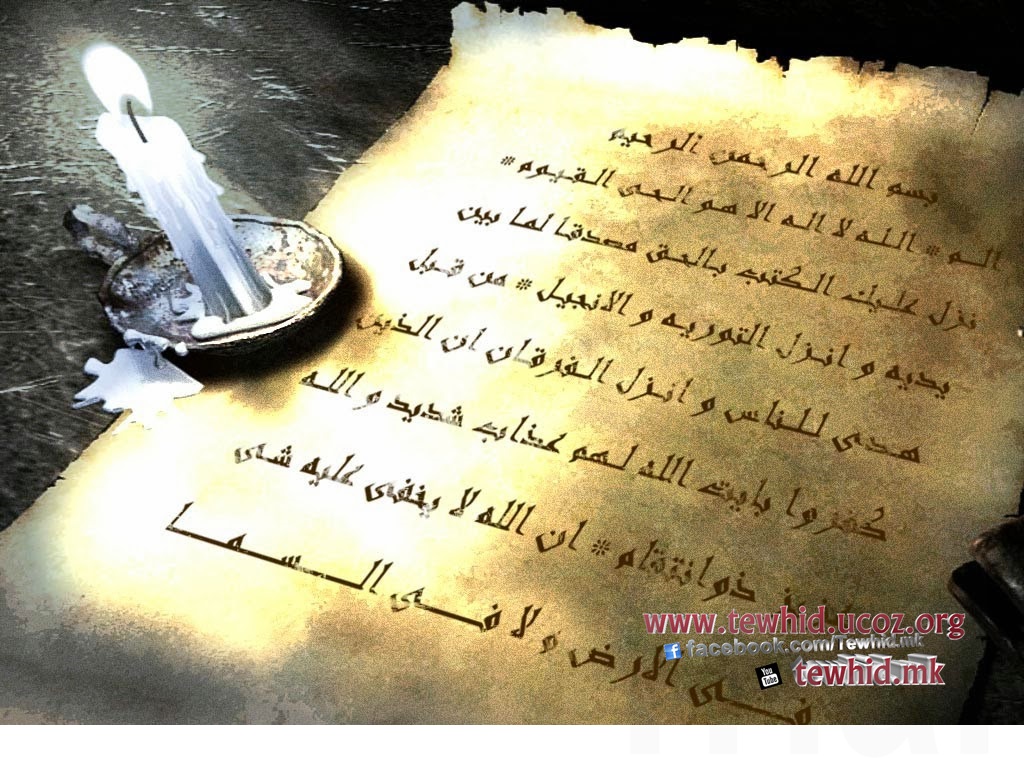 بسم الله الرحمن الرحيم
الم * الله لا اله الا هو الحى القيوم *
نزل عليك الكتب بالحق مصدقا لما بين
يديه و انزل التوريه و الانجيل * من قبل
هدى للناس و انزل الفرقان ان الذين
كفروا بايت الله لهم عذاب شديد و الله
ذو انتقام * ان الله لا يخفى عليه شى
فى الارض و لا فى السما
www.tewhid.ucoz.org
facebook.com/Tewhid.mk
You Tube tewhid.mk